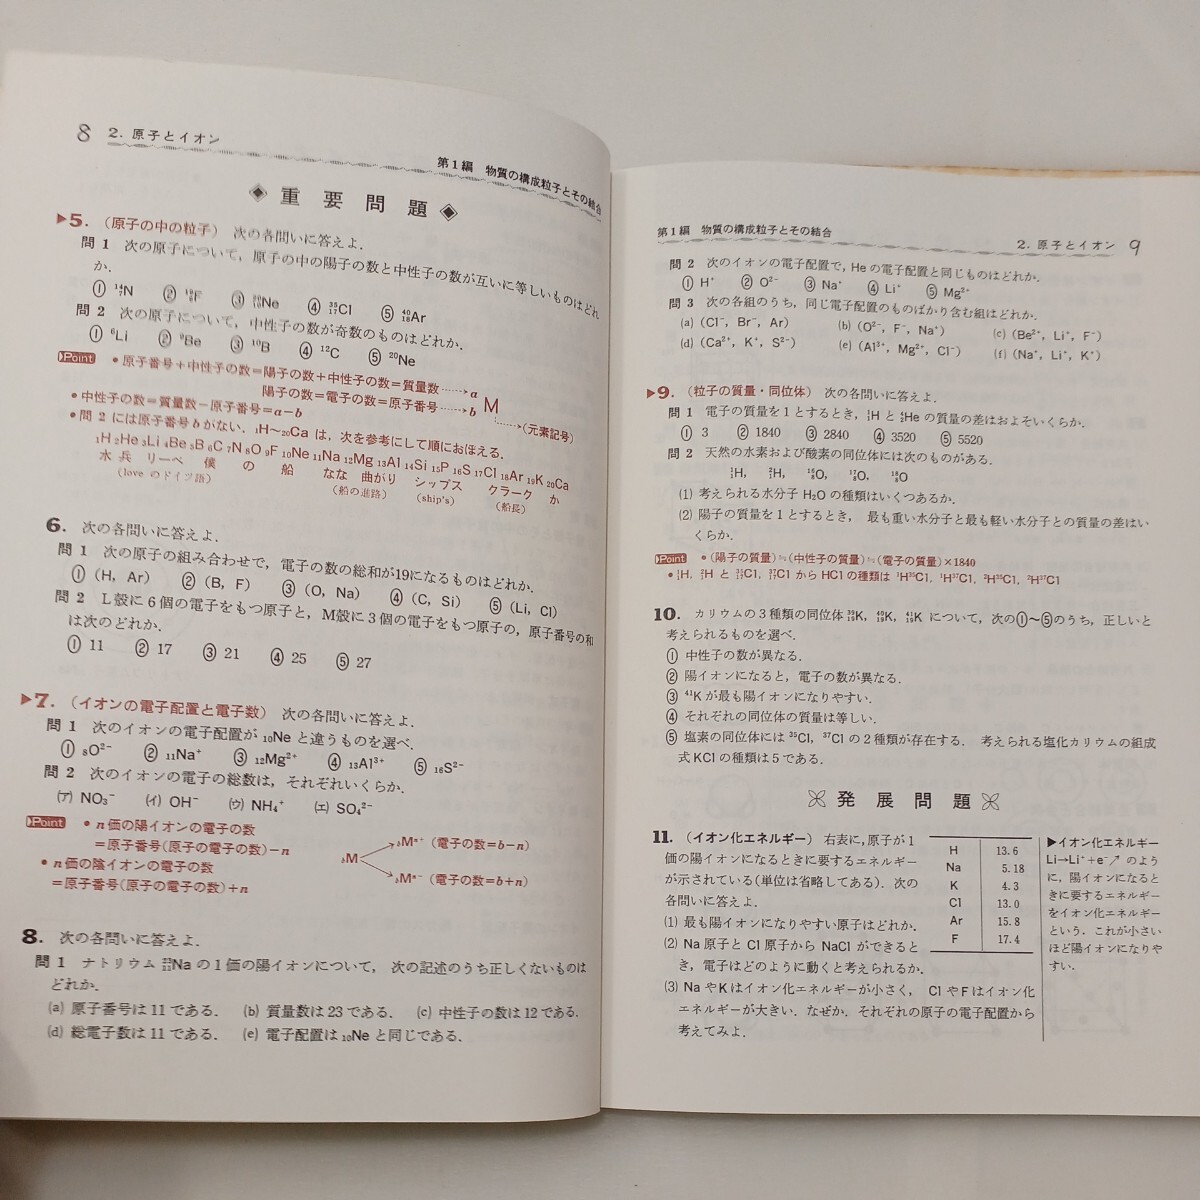 8 2. 原子とイオン
第1編 物質の構成粒子とその結合
◈ 重要問題 ◈
▶5. (原子の中の粒子) 次の各問いに答えよ.
問1 次の原子について,原子の中の陽子の数と中性子の数が互いに等しいものはどれ
か.
① ¹⁴₇N ② F ③ Ne ④ ³⁵₁₇Cl ⑤ ⁴⁰₁₈Ar
問2 次の原子について,中性子の数が奇数のものはどれか.
① ⁶Li ② ⁹Be ③ ¹⁰B ④ ¹²C ⑤ ²⁰Ne
Point • 原子番号+中性子の数=陽子の数+中性子の数=質量数……→a
陽子の数=電子の数=原子番号……→b M
• 中性子の数=質量数−原子番号=a−b ……→(元素記号)
• 問2には原子番号bがない. ₁H〜₂₀Caは,次を参考にして順におぼえる.
₁H ₂He ₃Li ₄Be ₅B ₆C ₇N ₈O ₉F ₁₀Ne ₁₁Na ₁₂Mg ₁₃Al ₁₄Si ₁₅P ₁₆S ₁₇Cl ₁₈Ar ₁₉K ₂₀Ca
水 兵 リーベ 僕 の 船 なな 曲がり シップス クラーク か
(loveのドイツ語) (船の進路) (ship's) (船長)
6. 次の各問いに答えよ.
問1 次の原子の組み合わせで,電子の数の総和が19になるものはどれか.
① (H, Ar) ② (B, F) ③ (O, Na) ④ (C, Si) ⑤ (Li, Cl)
問2 L殻に6個の電子をもつ原子と,M殻に3個の電子をもつ原子の,原子番号の和
は次のどれか.
① 11 ② 17 ③ 21 ④ 25 ⑤ 27
▶7. (イオンの電子配置と電子数) 次の各問いに答えよ.
問1 次のイオンの電子配置が ₁₀Ne と違うものを選べ.
① ₈O²⁻ ② ₁₁Na⁺ ③ ₁₂Mg²⁺ ④ ₁₃Al³⁺ ⑤ ₁₆S²⁻
問2 次のイオンの電子の総数は,それぞれいくらか.
(ア) NO₃⁻ (イ) OH⁻ (ウ) NH₄⁺ (エ) SO₄²⁻
Point • n価の陽イオンの電子の数
=原子番号(原子の電子の数)−n
• n価の陰イオンの電子の数
=原子番号(原子の電子の数)+n
ᵦM
ᵦMⁿ⁺ (電子の数=b−n)
ᵦMⁿ⁻ (電子の数=b+n)
8. 次の各問いに答えよ.
問1 ナトリウム ²³₁₁Na の1価の陽イオンについて, 次の記述のうち正しくないものは
どれか.
(a) 原子番号は11である. (b) 質量数は23である. (c) 中性子の数は12である.
(d) 総電子数は11である. (e) 電子配置は₁₀Neと同じである.
第1編 物質の構成粒子とその結合
2. 原子とイオン 9
問2 次のイオンの電子配置で,Heの電子配置と同じものはどれか.
① H⁺ ② O²⁻ ③ Na⁺ ④ Li⁺ ⑤ Mg²⁺
問3 次の各組のうち,同じ電子配置のものばかり含む組はどれか.
(a) (Cl⁻, Br⁻, Ar) (b) (O²⁻, F⁻, Na⁺) (c) (Be²⁺, Li⁺, F⁻)
(d) (Ca²⁺, K⁺, S²⁻) (e) (Al³⁺, Mg²⁺, Cl⁻) (f) (Na⁺, Li⁺, K⁺)
▶9. (粒子の質量・同位体) 次の各問いに答えよ.
問1 電子の質量を1とするとき, ¹₁H と ⁴₂He の質量の差はおよそいくらか.
① 3 ② 1840 ③ 2840 ④ 3520 ⑤ 5520
問2 天然の水素および酸素の同位体には次のものがある.
¹₁H, ²₁H, ¹⁶₈O, ¹⁷₈O, ¹⁸₈O
(1) 考えられる水分子 H₂O の種類はいくつあるか.
(2) 陽子の質量を1とするとき, 最も重い水分子と最も軽い水分子との質量の差はい
くらか.
Point • (陽子の質量)≒(中性子の質量)≒(電子の質量)×1840
• ¹₁H, ²₁H と ³⁵₁₇Cl, ³⁷₁₇Cl から HCl の種類は ¹H³⁵Cl, ¹H³⁷Cl, ²H³⁵Cl, ²H³⁷Cl
10. カリウムの3種類の同位体 ³⁹₁₉K, ⁴⁰₁₉K, ⁴¹₁₉K について,次の①〜⑤のうち,正しいと
考えられるものを選べ.
① 中性子の数が異なる.
② 陽イオンになると,電子の数が異なる.
③ ⁴¹Kが最も陽イオンになりやすい.
④ それぞれの同位体の質量は等しい.
⑤ 塩素の同位体には ³⁵Cl, ³⁷Cl の2種類が存在する. 考えられる塩化カリウムの組成
式KClの種類は5である.
発展問題
11. (イオン化エネルギー) 右表に,原子が1
価の陽イオンになるときに要するエネルギー
が示されている(単位は省略してある). 次の
各問いに答えよ.
(1) 最も陽イオンになりやすい原子はどれか.
(2) Na原子とCl原子からNaClができると
き,電子はどのように動くと考えられるか.
(3) NaやKはイオン化エネルギーが小さく, ClやFはイオン化
エネルギーが大きい. なぜか. それぞれの原子の電子配置から
考えてみよ.
H 13.6
Na 5.18
K 4.3
Cl 13.0
Ar 15.8
F 17.4
▶イオン化エネルギー
Li→Li⁺+e⁻↗ のよう
に,陽イオンになると
きに要するエネルギー
をイオン化エネルギー
という. これが小さい
ほど陽イオンになりや
すい.